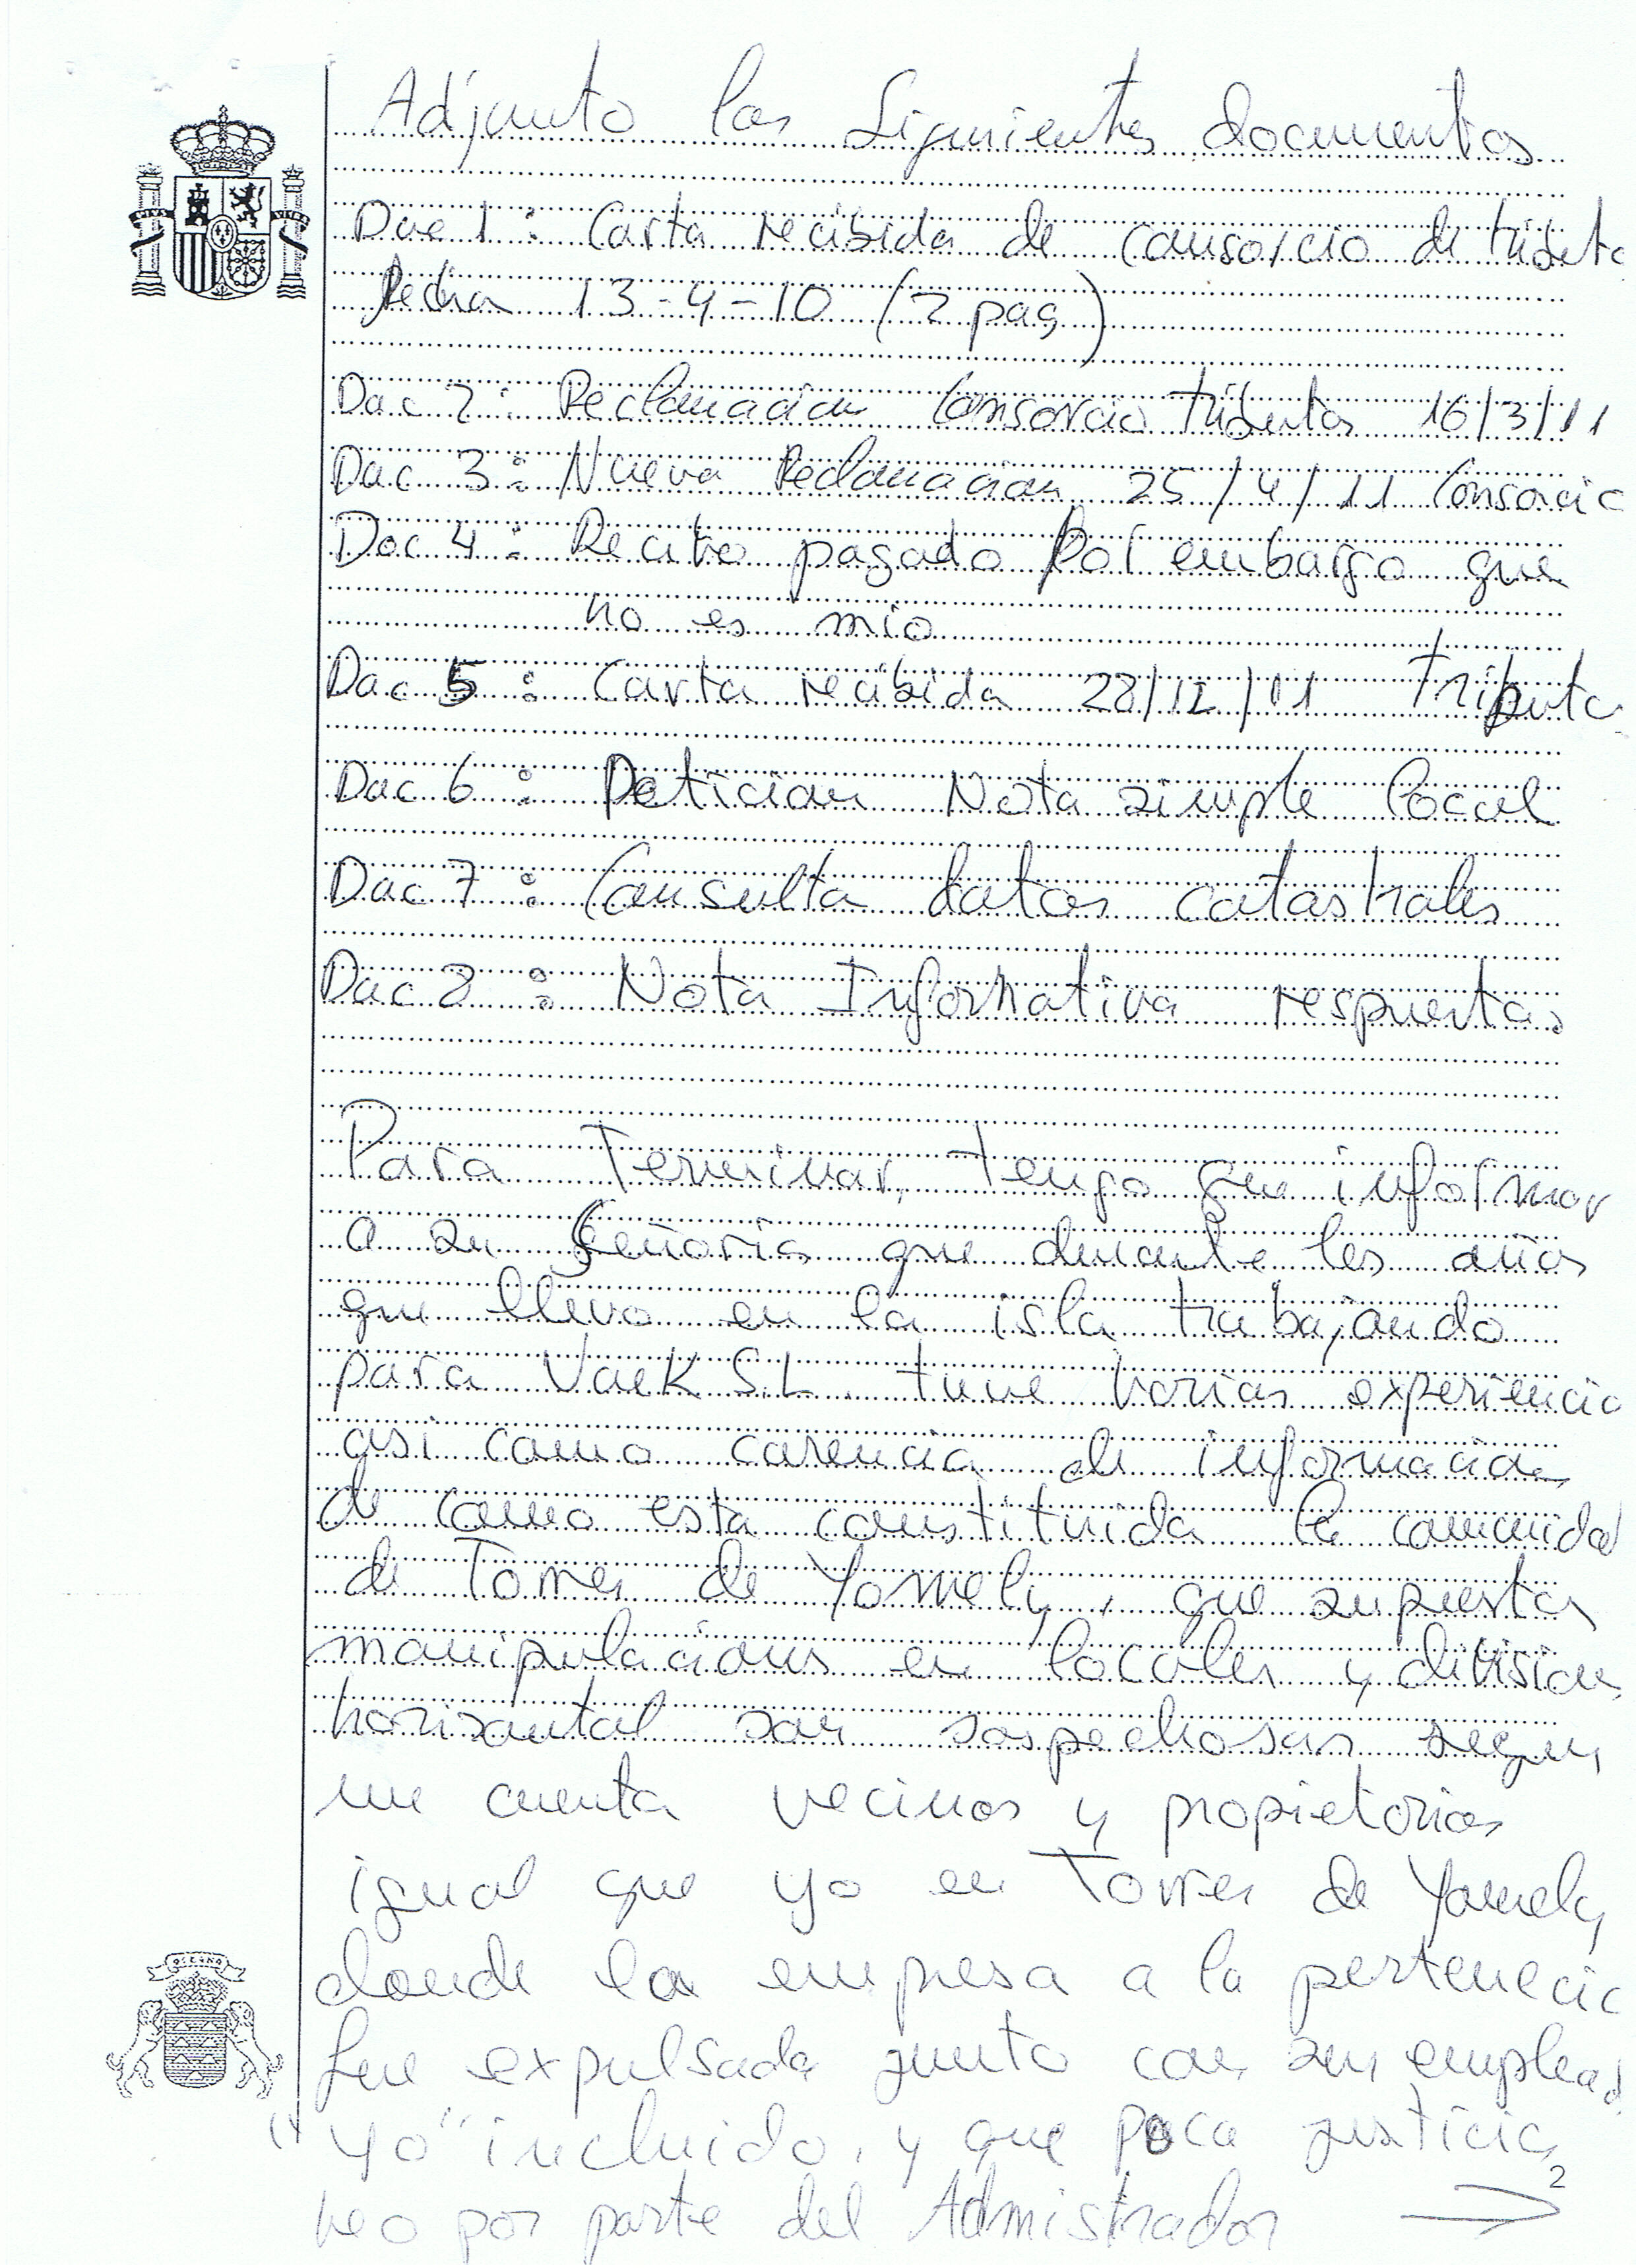 Adjunto los Siguientes documentos
Doc 1 : Carta recibida de consorcio de tributo
fecha 13-4-10 (2 pag)
Doc 2 : Reclamacion Consorcio tributos 16/3/11
Doc 3 : Nueva Reclamacion 25/4/11 Consorcio
Doc 4 : Recibo pagado por embargo que
no es mio
Doc 5 : Carta recibida 28/12/11 Tributo
Doc 6 : Peticion Nota simple local
Doc 7 : Consulta datos catastrales
Doc 8 : Nota Informativa respuestas
Para Terminar, tengo que informar
a su Señoria que durante los años
que llevo en la isla trabajando
para Vaek S.L tuve varias experiencia
asi como carencia de informacion
de como esta constituida la comunidad
de Torres de Yomely, que supuestas
manipulacions en locales y division
horizontal son sospechosas segun
me cuenta vecinos y propietarios
igual que yo en Torres de Yomely
donde la empresa a la pertenecia
fue expulsada junto con sus emplead
"yo" incluido, y que poca justicia
veo por parte del Admistrador
2
PLVS VLTRA
OCEANO